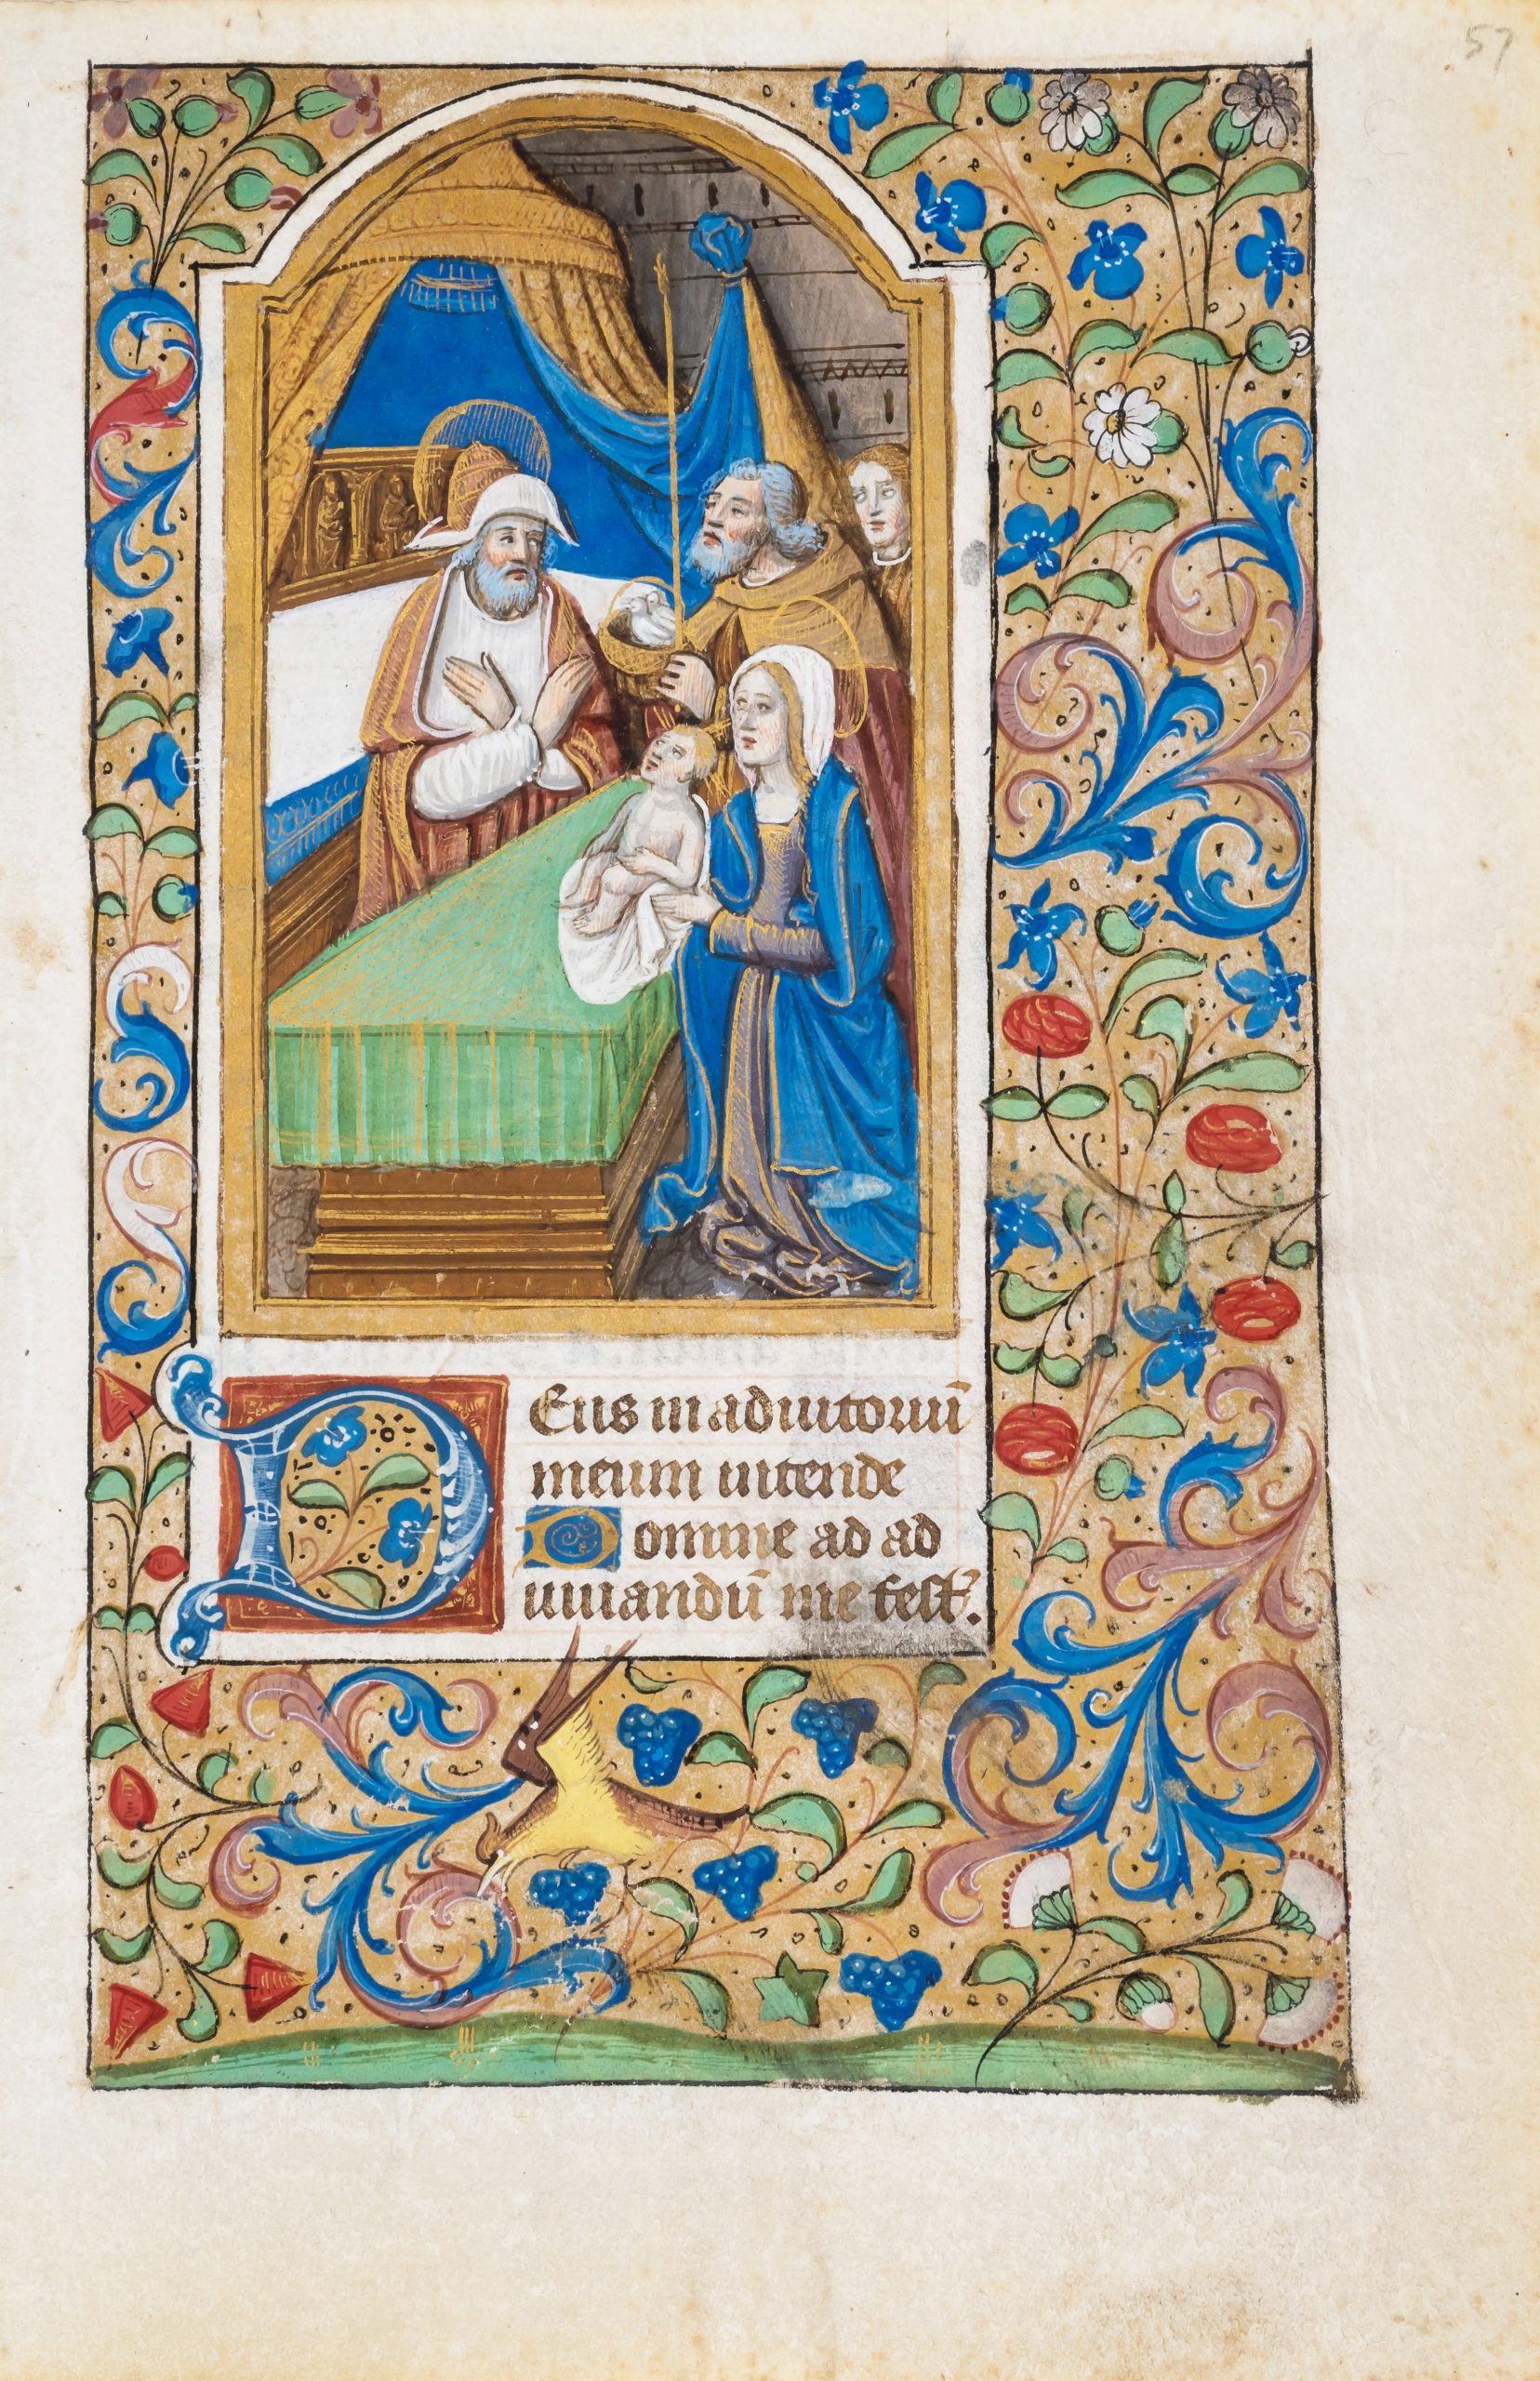 57
DEus in adiutoriū
meum intende
Domine ad ad
iuuandū me fest̄.